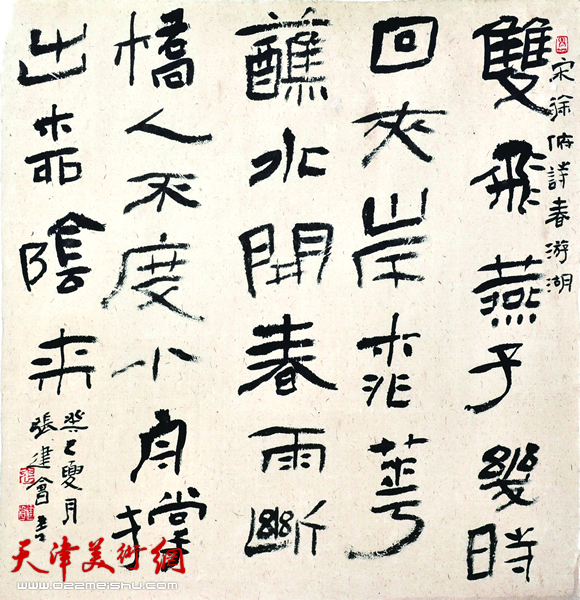 宋徐俯詩春游湖
雙飛燕子幾時
回夾岸桃華
蘸水開春雨斷
橋人不度小舟撐
出柳陰來
癸巳夏月
張建會書
天津美術網
www.022meishu.com